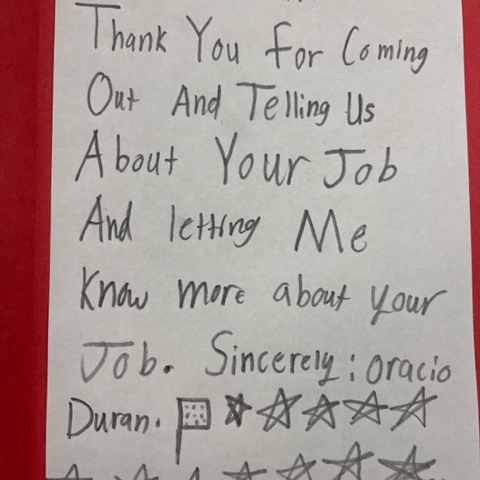 Thank You For Coming
Out And Telling Us
About Your Job
And letting Me
Know more about your
Job. Sincerely: oracio
Duran.